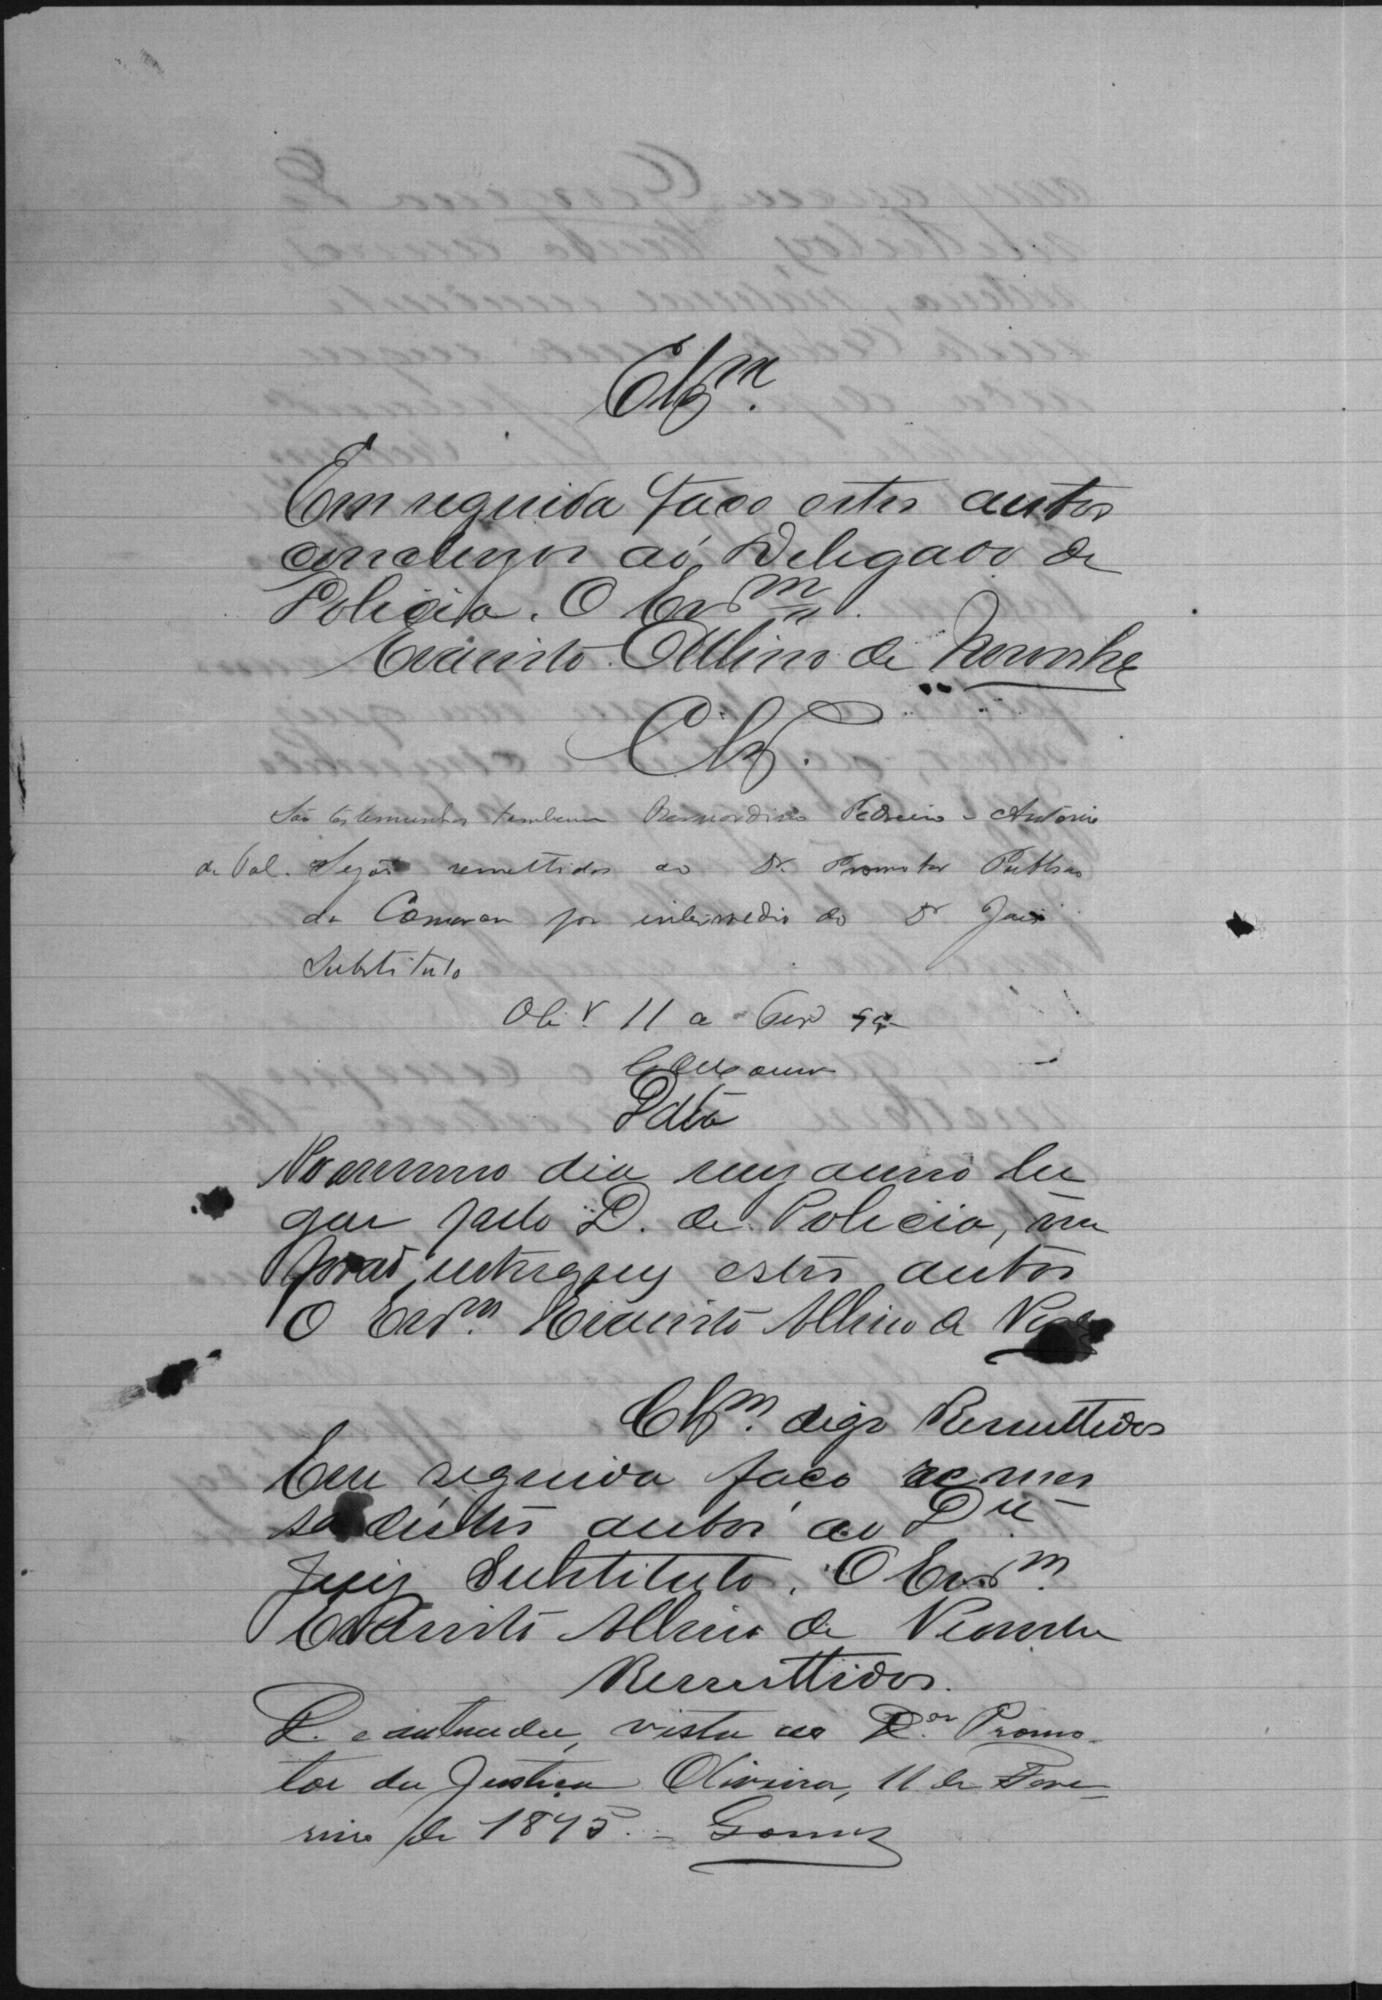 Clsm.
Em seguida faço estes autos
conclusos ao Delegado de
Policia. O Escm.
Evaristo Albino de Noronha
Cls.
São testemunhas tambem Bernardino Pedreiro e Antonio
de Tal. Sejão remettidos ao Dr. Promotor Publico
da Comarca por intermedio do Dr Juiz
Substituto
Olivr. 11 a Fevo 95
Data
No mesmo dia mez anno lu
gar pelo D. de Policia, me
forão entregues estes autos
O Escm. Evaristo Albino de
Clsm. digo Remettidos
Em seguida faço remes
sa destes autos ao
Juiz Substituto. O Escm.
Evaristo Albino de Noronha
Remettidos.
D. e autuada, vista ao Dor. Promo-
tor da Justiça Oliveira, 11 de Feve-
reiro de 1895. - Gomes